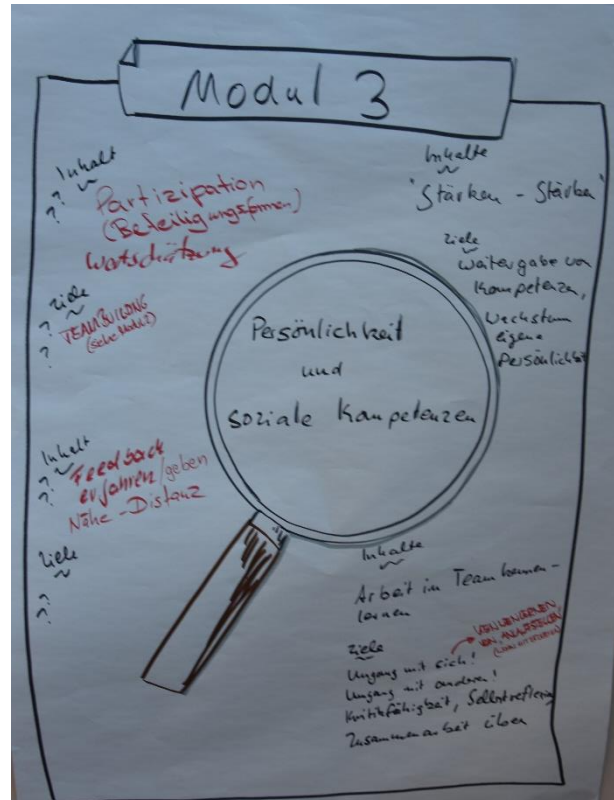 Modul 3
Inhalt
?
?
Partizipation
(Beteiligungsformen)
Wertschätzung
Ziele
?
?
TEAMBUILDING
(siehe Modul 2)
Inhalt
?
?
Feedback
erfahren/geben
Nähe - Distanz
Ziele
?
?
Persönlichkeit
und
soziale Kompetenzen
Inhalte
"Stärken - Stärken"
Ziele
Weitergabe von
Kompetenzen,
Wachstum
eigene
Persönlichkeit
Inhalte
Arbeit im Team kennen-
lernen
Ziele
Umgang mit sich!
Umgang mit anderen!
Kritikfähigkeit, Selbstreflexion
Zusammenarbeit üben
KENNENLERNEN
VON